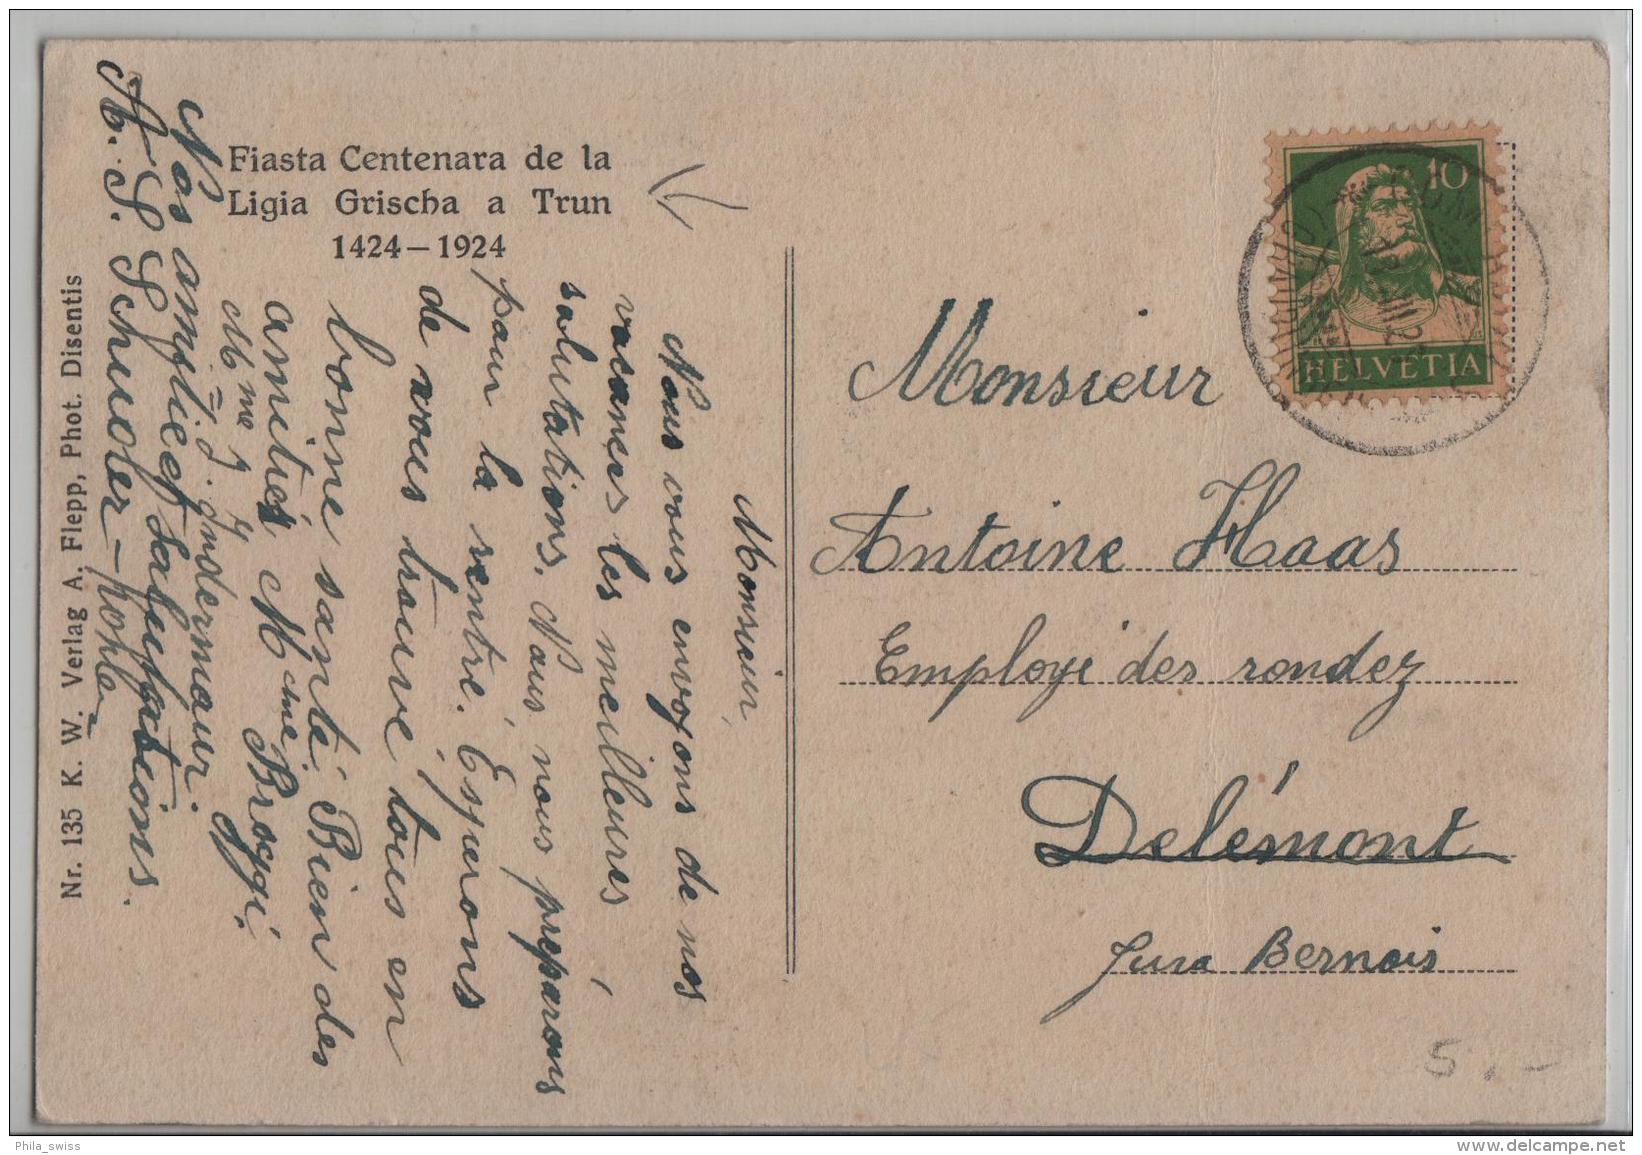 Fiasta Centenara de la
Ligia Grischa a Trun
1424–1924
Nr. 135 K. W. Verlag A. Flepp, Phot. Disentis
Monsieur,
Nous vous envoyons de nos
vacances les meilleures
salutations. Nous nous preparons
pour la rentré. Esperons
de vous trouvé tous en
bonne santé. Bien des
amitiés Mme Broggi.
Mme J. Indermaur.
Nos amitié et Salutations.
A. S. Schuoler – Kohler
Monsieur
Antoine Haas
Employé des rondez
Delémont
Jura Bernois
10
HELVETIA
5.-
Phila_swiss
www.delcampe.net